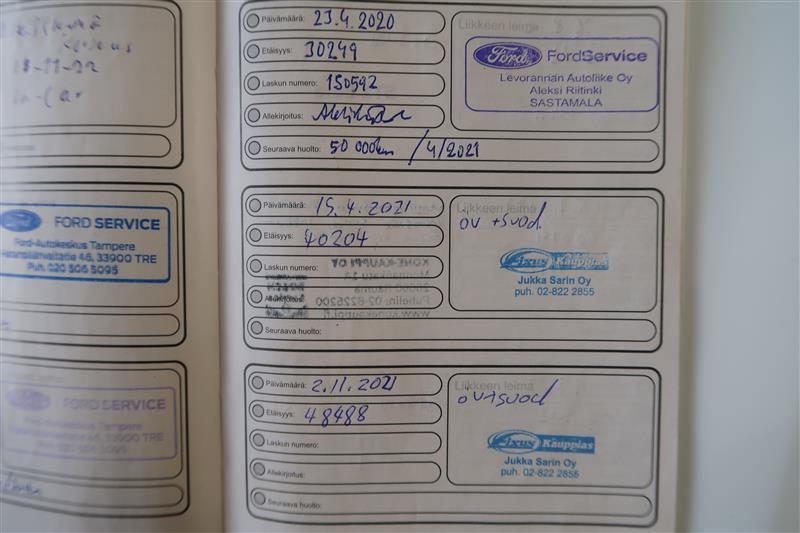 FORD SERVICE
Ford-Autokeskus Tampere
Hatanpäänvaltatie 46, 33900 TRE
Puh. 020 506 5095
FORD SERVICE
Ford-Autokeskus Tampere
Hatanpäänvaltatie 46, 33900 TRE
Puh. 020 506 5095
Päivämäärä: 23.4.2020
Etäisyys: 30249
Laskun numero: 150592
Allekirjoitus:
Seuraava huolto: 50 000km /4/2021
Liikkeen leima
Ford FordService
Levorannan Autoliike Oy
Aleksi Riitinki
SASTAMALA
Päivämäärä: 15.4.2021
Etäisyys: 40204
Laskun numero:
Allekirjoitus:
Seuraava huolto:
Liikkeen leima
öv + suod.
Axus Kauppias
Jukka Sarin Oy
puh. 02-822 2855
KONE-KAUPPI OY
Puhelin: 02-8225200
www.konekauppi.fi
Päivämäärä: 2.11.2021
Etäisyys: 48488
Laskun numero:
Allekirjoitus:
Seuraava huolto:
Liikkeen leima
öv+suod
Axus Kauppias
Jukka Sarin Oy
puh. 02-822 2855